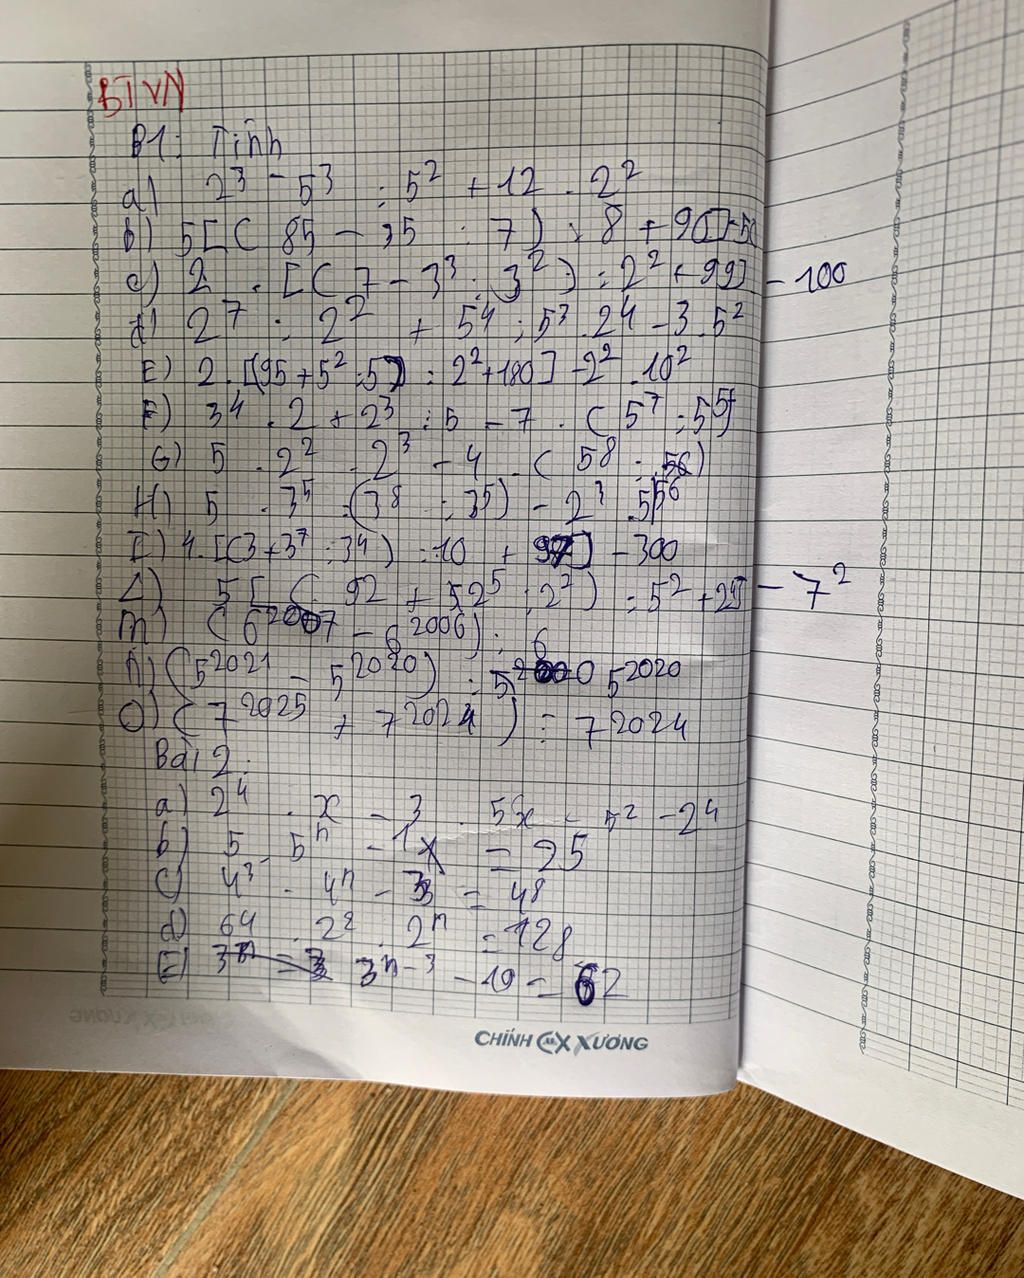 BTVN
B1: Tính
a) 2³ - 5³ : 5² + 12 . 2²
b) 5[( 85 - 35 : 7) : 8 + 90] - 50
c) 2 . [( 7 - 3³ : 3²) : 2² + 99] - 100
d) 2⁷ : 2² + 5⁴ : 5³ . 2⁴ - 3 . 5²
E) 2 . [(95 + 5² : 5) : 2² + 180] - 2² . 10²
F) 3⁴ . 2 + 2³ : 5 - 7 . ( 5⁷ : 5⁵)
G) 5 . 2² . 2³ - 4 . ( 5⁸ : 5⁶)
H) 5 . 3⁵ : (3⁸ : 3⁵) - 2³ . 5
I) 4 . [(3 + 3⁷ : 3⁴) : 10 + 97] - 300
L) 5[ ( 92 + 2⁵ : 2²) : 5² + 25] - 7²
m) ( 6²⁰⁰⁷ - 6²⁰⁰⁶) : 6
n) (5²⁰²¹ - 5²⁰²⁰) : 5²⁰²⁰
O) ( 7²⁰²⁵ + 7²⁰²⁴ ) : 7²⁰²⁴
Bài 2:
a) 2⁴ . x - 3 . 5x = 5² - 2⁴
b) 5 . 5ⁿ - 1 = 25
c) 4³ . 4ⁿ - 3 = 48
d) 64 . 2² . 2ⁿ = 128
E) 3ⁿ⁻³ - 19 = 62
CHÍNH XƯƠNG